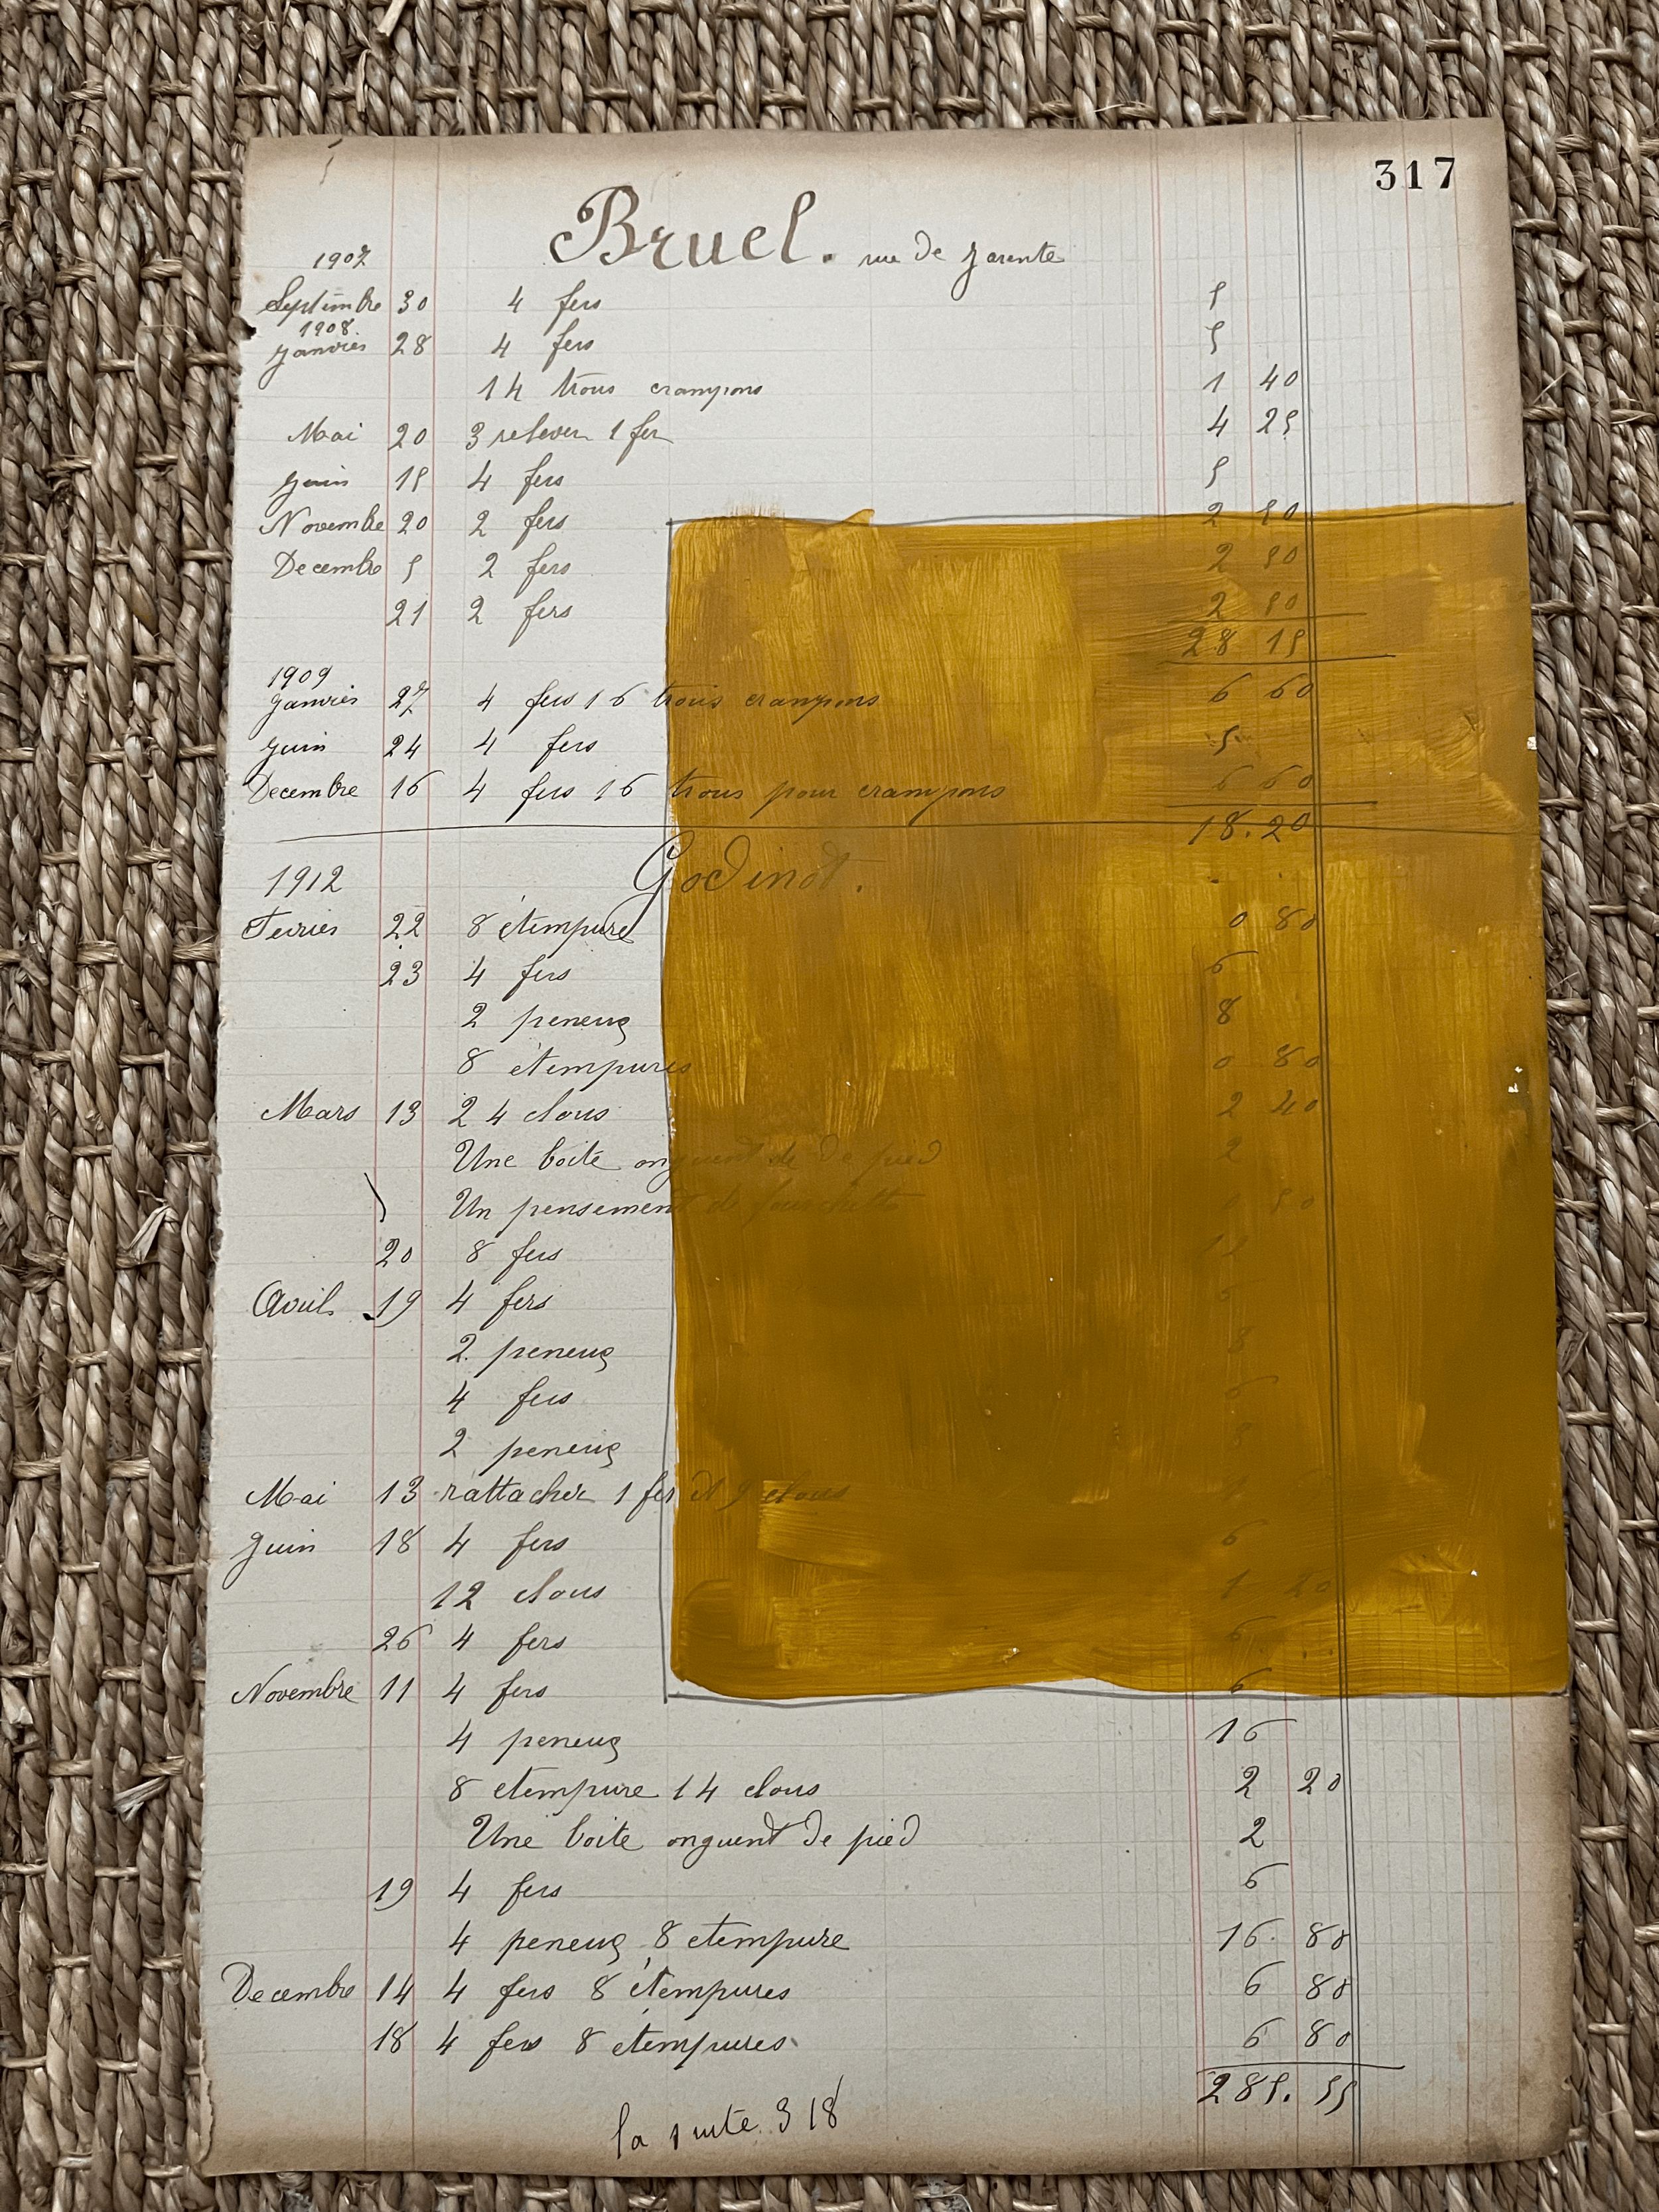 317
Bruel. rue de Jarente
1907
Septembre 30 4 fers 5
1908.
Janvier 28 4 fers 5
14 trous crampons 1 40
Mai 20 3 relever 1 fer 4 25
Juin 15 4 fers 5
Novembre 20 2 fers 2 50
Decembre 5 2 fers 2 50
21 2 fers 2 50
28 15
1909
Janvier 27 4 fers 16 trous crampons 6 60
Juin 24 4 fers 5
Decembre 16 4 fers 16 trous pour crampons 6 60
18.20
Godinot.
1912
Fevrier 22 8 étempure 0 80
23 4 fers 6
2 peneus 8
8 étempures 0 80
Mars 13 24 clous 2 40
Une boite onguent de de pied 2
Un pensement de fourchette 50
20 8 fers 12
Avril 19 4 fers 6
2 peneus 8
4 fers 6
2 peneus 8
Mai 13 rattacher 1 fer et 9 clous
Juin 18 4 fers 6
12 clous 1 20
26 4 fers 6
Novembre 11 4 fers 6
4 peneus 16
8 etempure 14 clous 2 20
Une boite onguent de pied 2
19 4 fers 6
4 peneus 8 etempure 16 80
Decembre 14 4 fers 8 étempures 6 80
18 4 fers 8 étempures 6 80
285.55
la suite 318